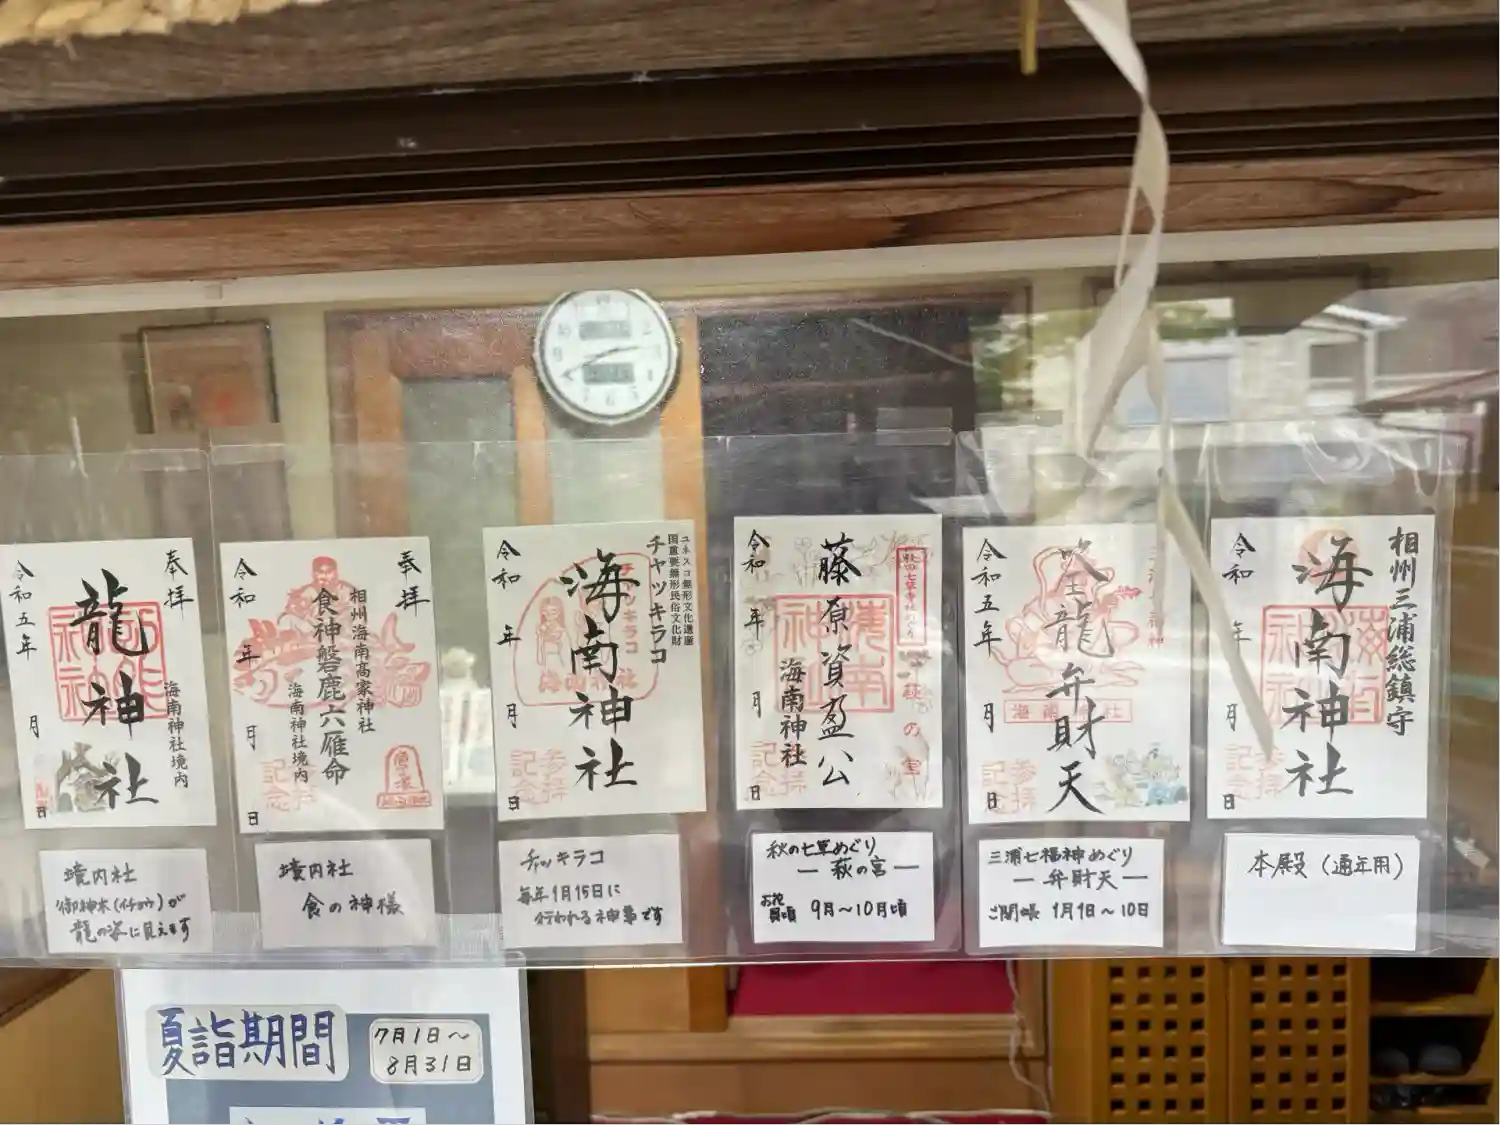 相州三浦総鎮守
海南神社
令和
年
月
日
参拝
記念
本殿（通年用）
龍弁財天
令和五年
月
日
海南神社
参拝
記念
三浦七福神めぐり
ー弁財天ー
ご開帳 1月1日～10日
藤原資盈公
海南神社
令和
年
月
日
記念
秋の七草めぐり
ー萩の宮ー
お花
見頃
9月～10月頃
ユネスコ無形文化遺産
国重要無形民俗文化財
チャッキラコ
海南神社
令和
年
月
日
参拝
記念
チャッキラコ
毎年1月15日に
行われる神事です
奉拝
相州海南高家神社
食神磐鹿六雁命
海南神社境内
令和
年
月
日
記念
境内社
食の神様
奉拝
龍神社
海南神社境内
令和五年
月
日
境内社
御神木(イチョウ)が
龍の姿に見えます
夏詣期間
7月1日～
8月31日